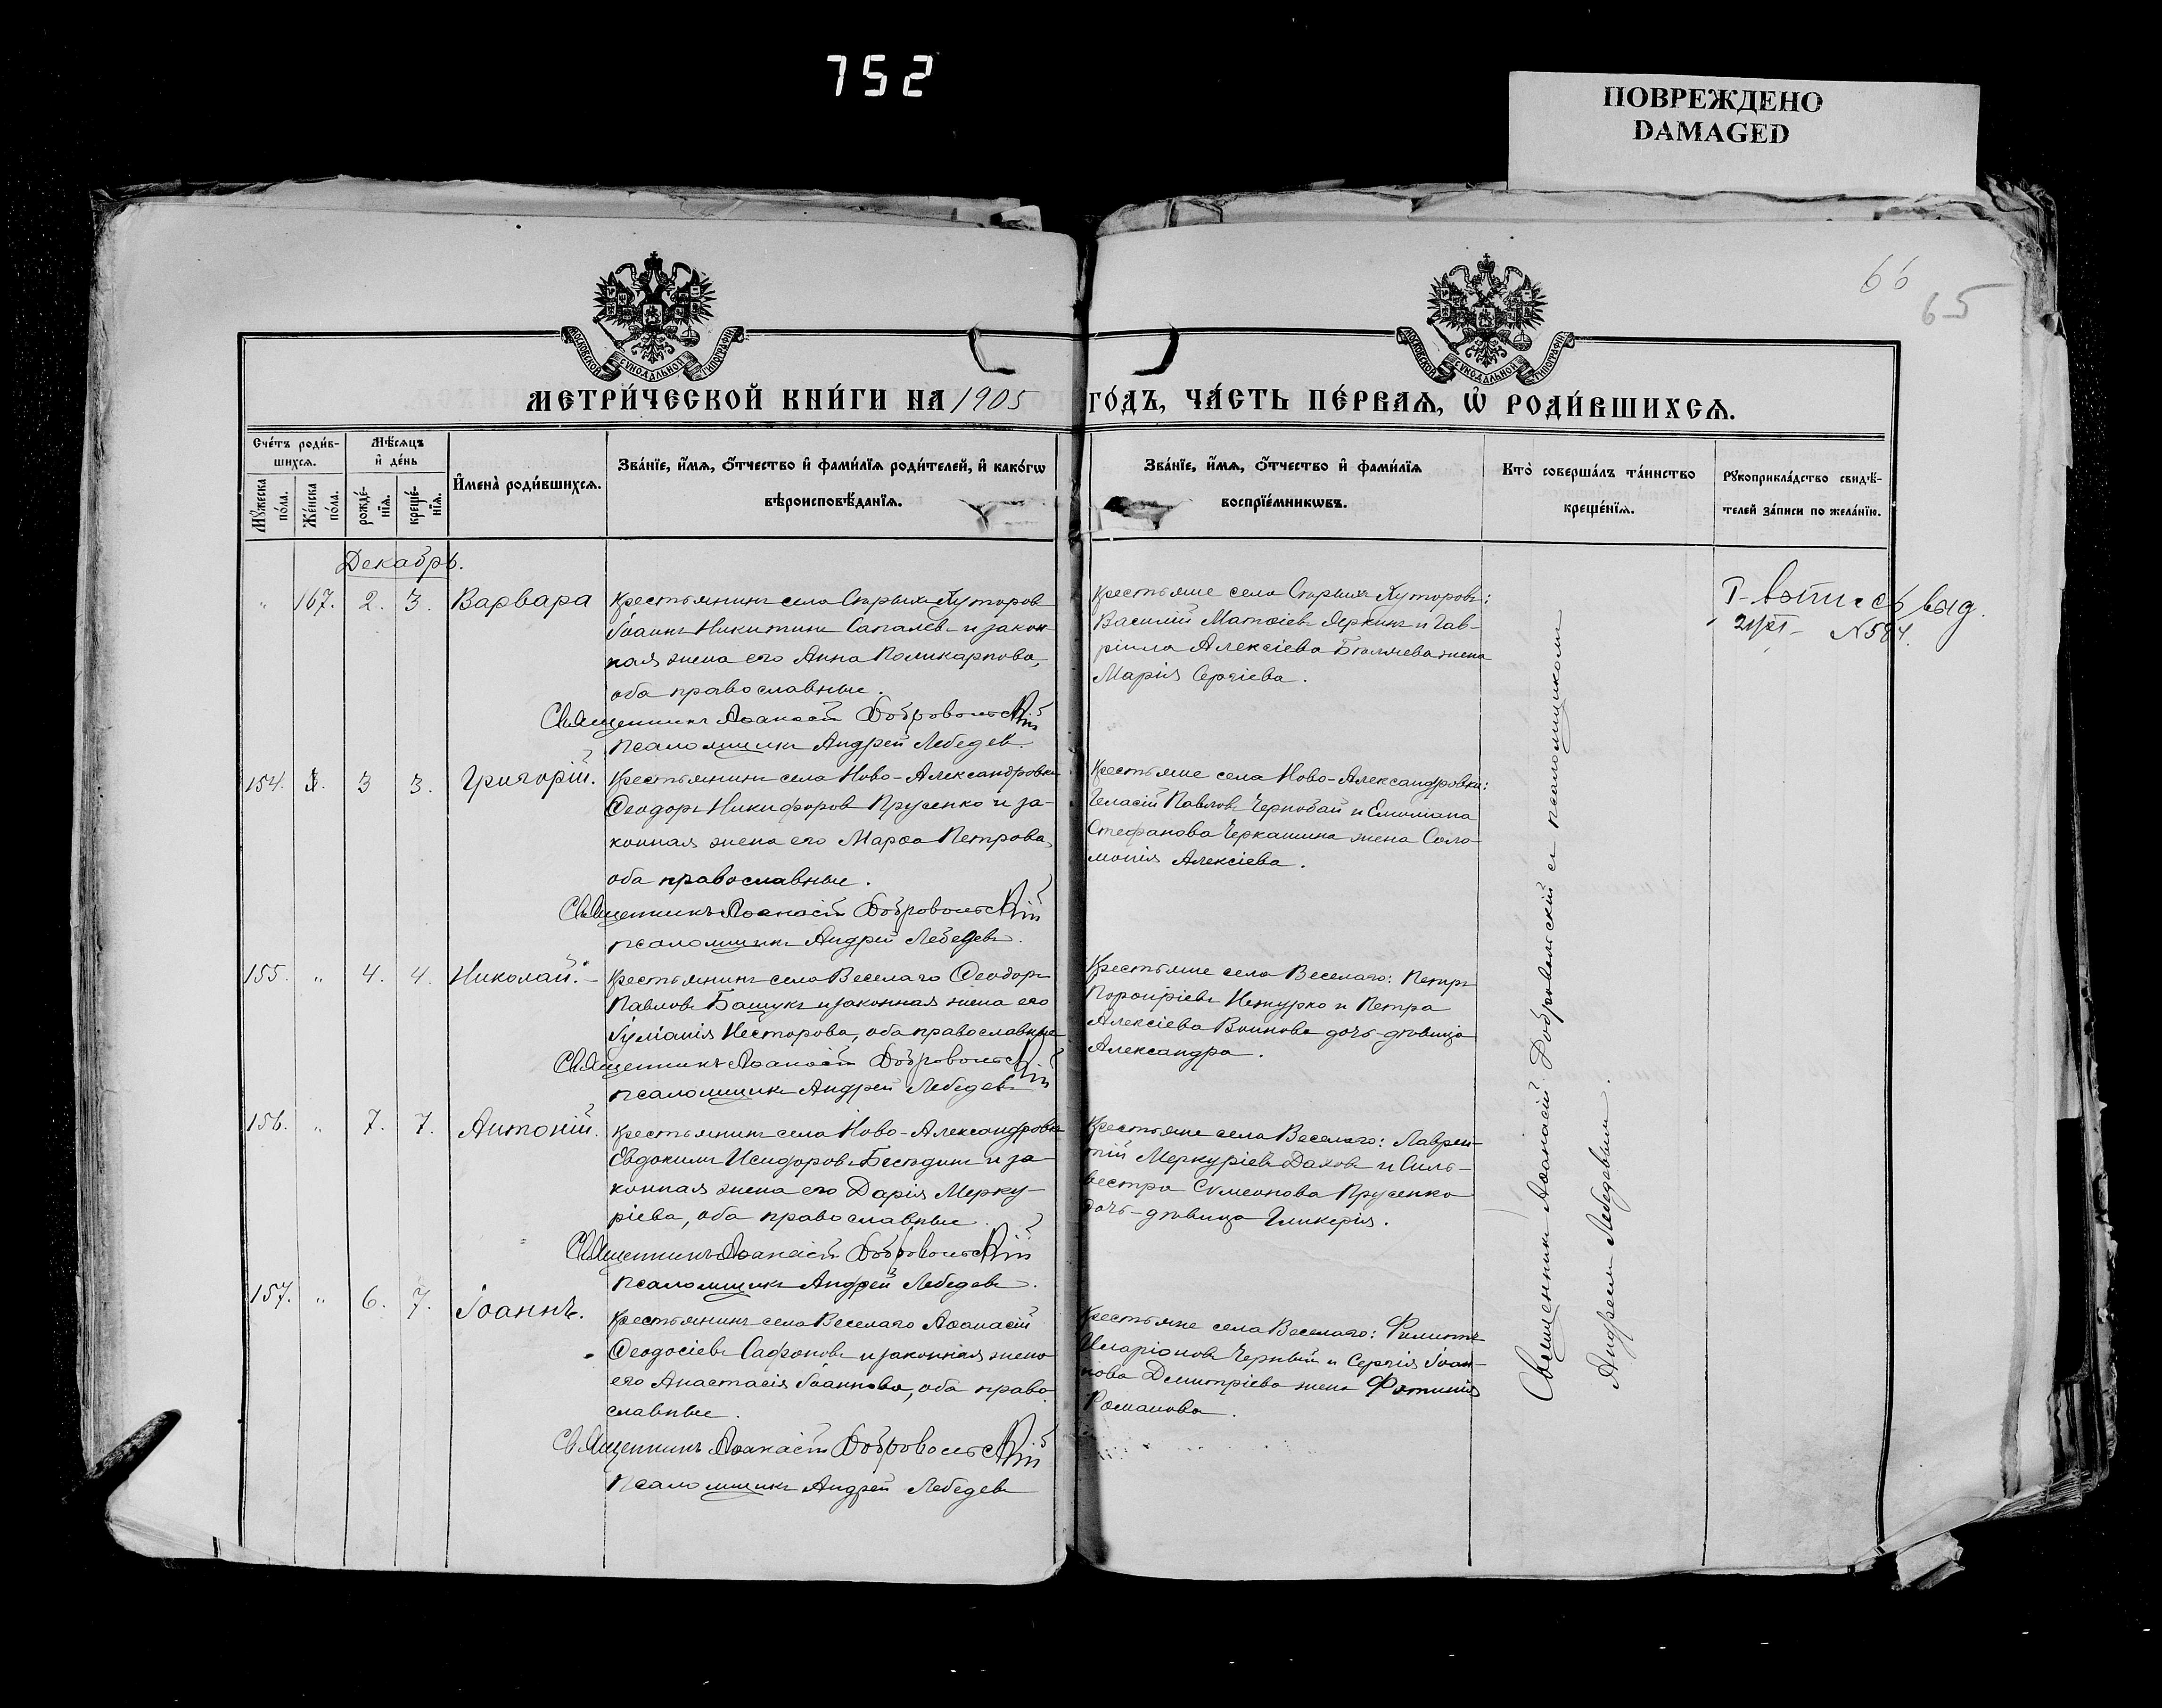 752
ПОВРЕЖДЕНО
DAMAGED
66
65
МОСКОВСКОЙ СѴНОДАЛЬНОЙ ТИПОГРАФІИ
МОСКОВСКОЙ СѴНОДАЛЬНОЙ ТИПОГРАФІИ
МЕТРИ́ЧЕСКОЙ КНИ́ГИ НА 1905 ГО́ДЪ, ЧА́СТЬ ПЕ́РВАѦ, Ѡ҆ РОДИ́ВШИХСѦ.
Сче́тъ роди́в-
шихсѧ.
Мꙋ́жеска по́ла.
Же́нска по́ла.
Мѣ́сѧцъ и҆ де́нь
рожде́-нїѧ.
креще́-нїѧ.
И҆мена̀ роди́вшихсѧ.
Зва́нїе, и҆́мѧ, ѻ҆́тчество и҆ фами́лїѧ роди́телей, и҆ како́гѡ
вѣроисповѣ́данїѧ.
Зва́нїе, и҆́мѧ, ѻ҆́тчество и҆ фами́лїѧ
воспрїе́мникѡвъ.
Кто̀ соверша́лъ та́инство
креще́нїѧ.
Рꙋкоприкла́дство свидѣ́-
телей за́писи по жела́нїю.
Декабрь.
" 167. 2. 3. Варвара
Крестьянинъ села Старыхъ Хуторовъ
Іоаннъ Никитинъ Сапалевъ и закон-
ная жена его Анна Поликарпова,
оба православные.
Священникъ Аѳанасій Добровольскій
Псаломщикъ Андрей Лебедевъ.
Крестьяне села Старыхъ Хуторовъ:
Василій Матѳіевъ Деркинъ и Гав-
ріила Алексіева Бѣляева жена
Марія Сергіева.
выпись выд.
N 584.
154. 3 3. Григорій.
Крестьянинъ села Ново-Александровки
Ѳеодоръ Никифоровъ Прусенко и за-
конная жена его Марѳа Петрова,
оба православные.
Священникъ Аѳанасій Добровольскій
псаломщикъ Андрей Лебедевъ.
Крестьяне села Ново-Александровки:
Геласій Павловъ Чернобай и Емиліана
Стефанова Черкашина жена Соло-
монія Алексіева.
155. " 4. 4. Николай.
Крестьянинъ села Веселаго Ѳеодоръ
Павловъ Башукъ и законная жена его
Іуліанія Несторова, оба православные
Священникъ Аѳанасій Добровольскій
псаломщикъ Андрей Лебедевъ
Крестьяне села Веселаго: Петръ
Порфиріевъ и Петра
Алексіева Воинова дочь-дѣвица
Александра.
156. " 7. 7. Антоній.
Крестьянинъ села Ново-Александровки
Евдокимъ Исидоровъ Бесѣдинъ и за-
конная жена его Дарія Мерку-
ріева, оба православные.
Священникъ Аѳанасій Добровольскій
Псаломщикъ Андрей Лебедевъ.
Крестьяне села Веселаго: Лаврен-
тій Меркуріевъ Даховъ и Силь-
вестра Симеонова Прусенко
дочь-дѣвица Гликерія.
157. " 6. 7. Іоаннъ.
Крестьянинъ села Веселаго Аѳанасій
Ѳеодосіевъ Сафоновъ и законная жена
его Анастасія Іоаннова, оба право
славные.
Священникъ Аѳанасій Добровольскій
Псаломщикъ Андрей Лебедевъ
Крестьяне села Веселаго: Филиппъ
Иларіоновъ Черный и Сергія Іоан-
нова Димитріева жена Фотинія
Романова.
Священникъ Аѳанасій Добровольскій съ псаломщикомъ
Андреемъ Лебедевымъ.